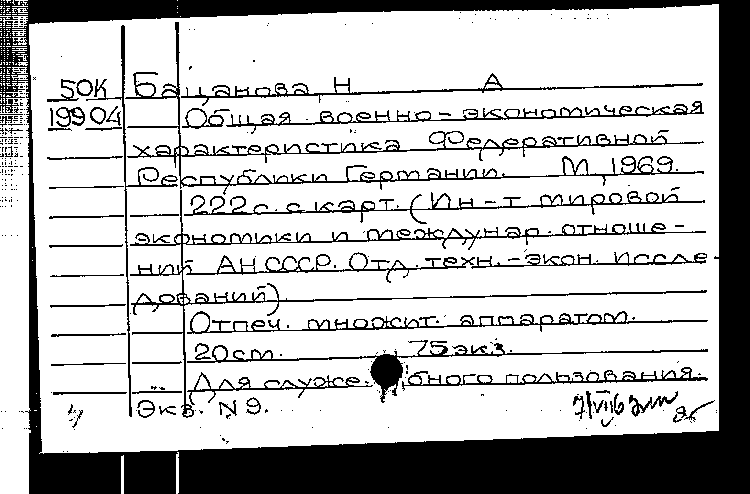 50К Бацанова, Н А
19904 Общая военно-экономическая
характеристика Федеративной
Республики Германии. М, 1969.
222с. с карт. (Ин-т мировой
экономики и междунар. отноше-
ний АН СССР. Отд. техн.-экон. иссле-
дований).
Отпеч. множит. аппаратом.
20см. 75экз.
Для служе. бного пользования.
Экз. N 9.